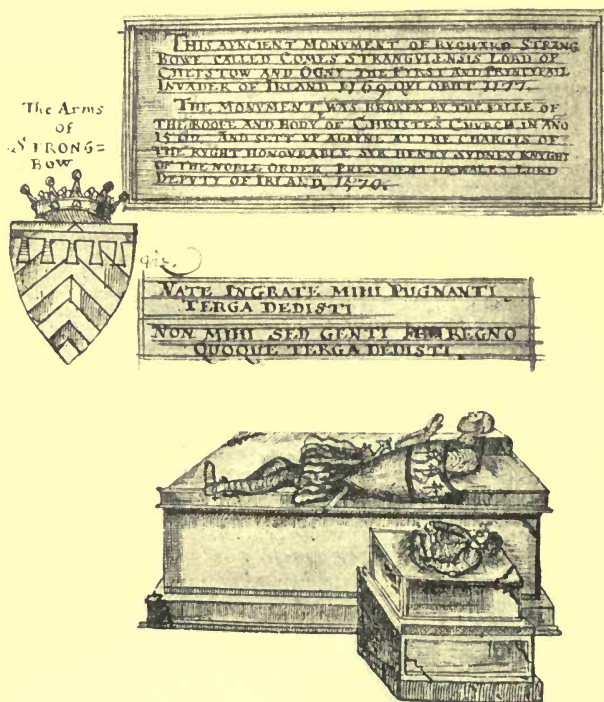 THIS AVNCIENT MONVMENT OF RYCHARD STRANG
BOWE CALLED COMES STRANGVLENSIS LORD OF
CHEPSTOW AND OGNY THE FYRST AND PRINCYPALL
INVADER OF IRLAND 1169 QUI OBIIT 1177.
THE MONVMENT WAS BROKEN BY THE FALLE OF
THE ROOFE AND BODY OF CHRISTES CHVRCH IN ANO
AND SETT VP AGAYNE AT THE CHARGYS OF
THE RYGHT HONOVRABLE SYR HENRY SYDNEY KNYGHT
OF THE NOBLE ORDER PRESYDENT OF WALES LORD
DEPUTY OF IRLAND. 1570.
The Arms
of
STRONG=
BOW
NATE INGRATE MIHI PUGNANTI
TERGA DEDISTI
NON MIHI SED GENTI REGNO
QUOQUE TERGA DEDISTI